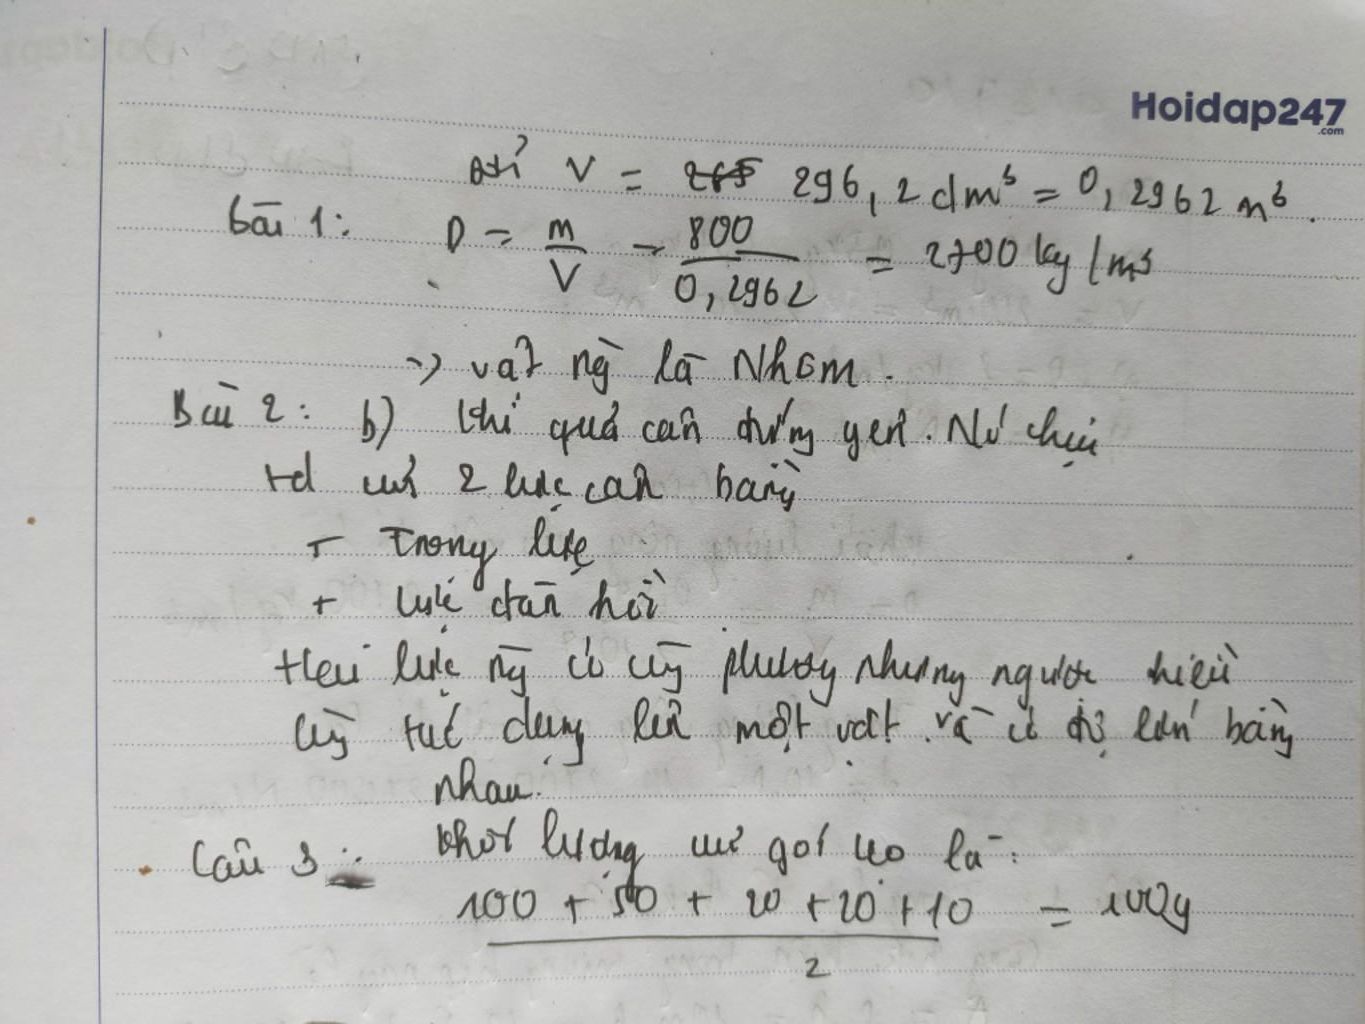 Hoidap247
.com
Đổi V = 296,2 dm³ = 0,2962 m³.
bài 1: D = m/V = 800/0,2962 = 2700 kg/m³
=> vật ng là Nhôm.
Bài 2: b) khi quả cân đứng yên. Nó chịu
td của 2 lực cân bằng
+ Trọng lực
+ lực đàn hồi
Hai lực ng có cùng phương nhưng ngược chiều
cùng tác dụng lên một vật và có độ lớn bằng
nhau.
Câu 3: khối lượng của gói kẹo là:
100 + 50 + 20 + 20 + 10 / 2 = 100g